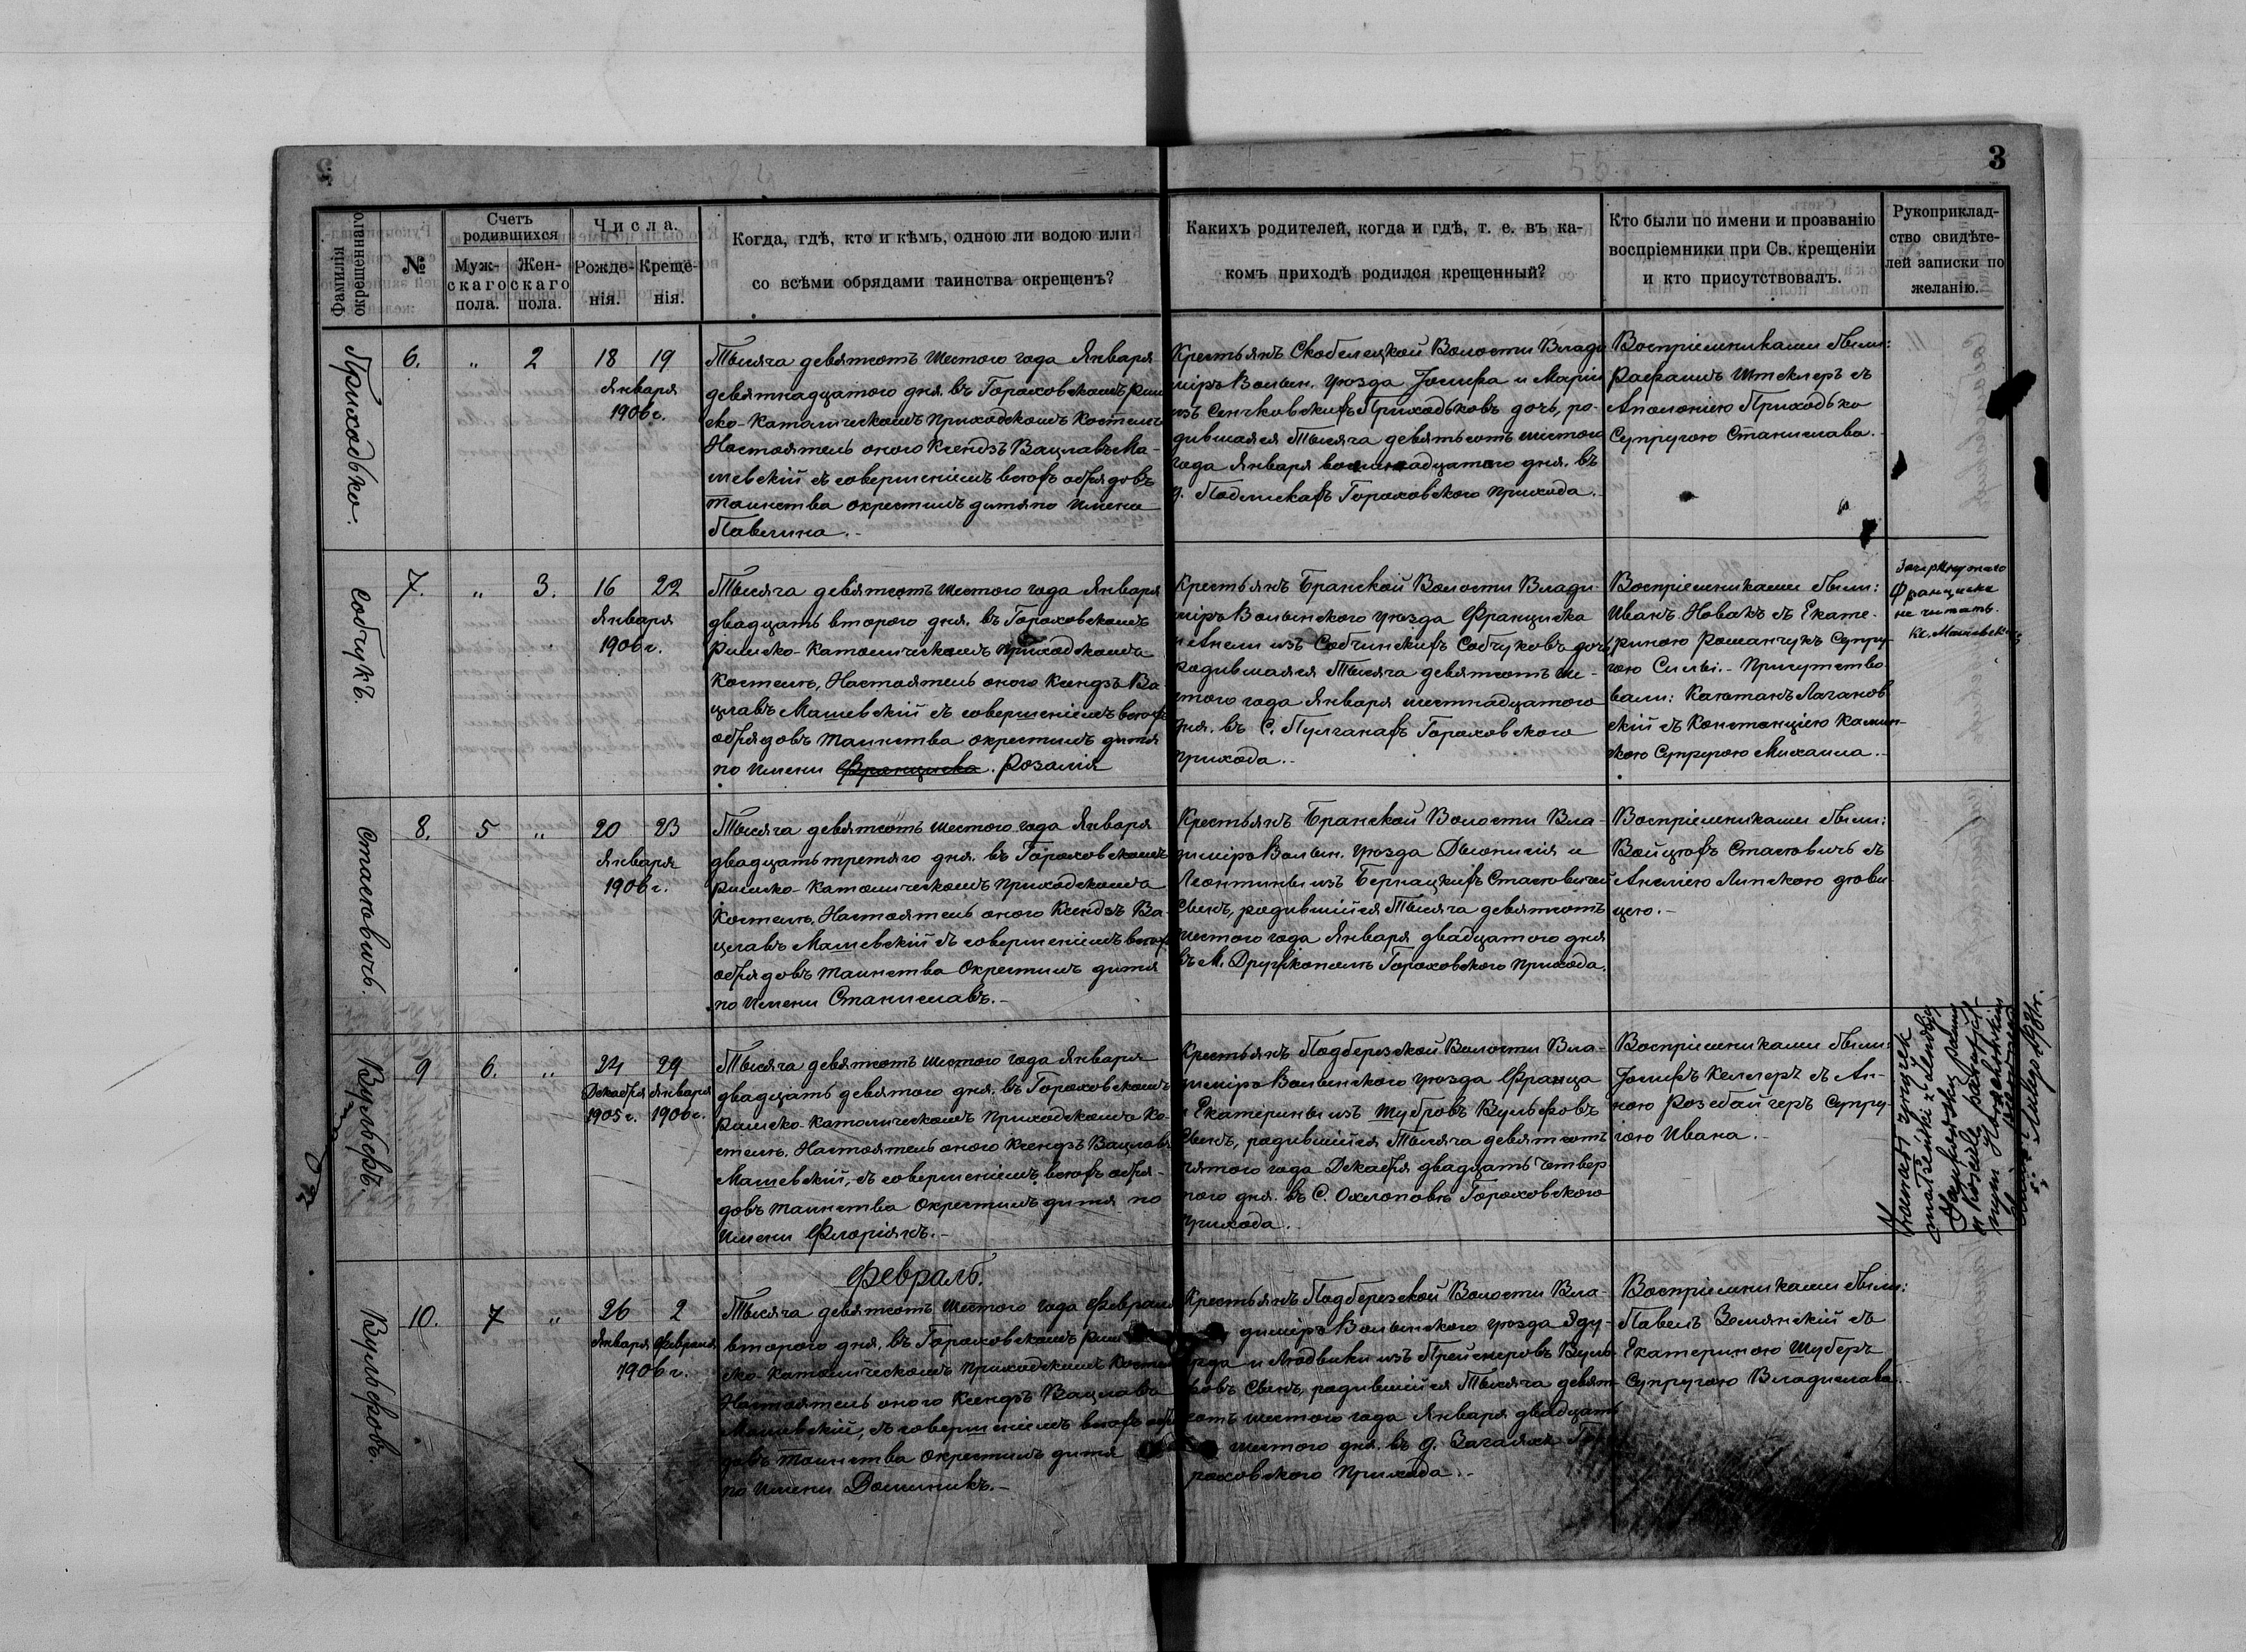 3
Фамилія
окрещеннаго
№
Счетъ
родившихся
Муж-
скаго
пола.
Жен-
скаго
пола.
Числа.
Рожде-
нія.
Креще-
нія.
Когда, гдѣ, кто и кѣмъ, одною ли водою или
со всѣми обрядами таинства окрещенъ?
Какихъ родителей, когда и гдѣ, т. е. въ ка-
комъ приходѣ родился крещенный?
Кто были по имени и прозванію
воспріемники при Св. крещеніи
и кто присутствовалъ.
Рукоприклад-
ство свидѣте-
лей записки по
желанію.
Приходько.
6. " 2 18 19
Января
1906 г.
Тысяча девятьсотъ шестого года Января
девятнадцатого дня. въ Гороховскомъ Рим
ско-Католическомъ Приходскомъ Костелѣ
Настоятель оного Ксендзъ Вацлавъ Ма-
шевскій съ совершеніемъ всѣхъ обрядовъ
таинства окрестилъ дитя по имени
Павлина.-
Крестьянъ Скобелецкой Волости Влади
міръ Волын. уѣзда Іосифа и Маріи
изъ Сенчковскихъ Приходьковъ дочь, ро-
дившаяся Тысяча девятьсотъ шестого
года Января восемнадцатого дня. въ
Гороховского прихода.-
Воспріемниками были:
Рафаилъ Штеклеръ съ
Аполоніею Приходько
Супругою Станислава.-
Собчукъ.
7. " 3. 16 22
Января
1906 г.
Тысяча девятьсотъ шестого года Января
двадцать второго дня. въ Гороховскомъ
Римско-Католическомъ Приходскомъ
Костелѣ, Настоятель оного Ксендзъ Ва
цлавъ Машевскій съ совершеніемъ всѣхъ
обрядовъ таинства окрестилъ дитя
по имени Франциска. Розалія
Крестьянъ Бранской Волости Влади-
міръ Волынского уѣзда Франциска
и Анели изъ Собчинскихъ Собчуковъ дочь,
родившаяся Тысяча девятьсотъ ше-
стого года Января шестнадцатого
дня. въ С. Пулганахъ Гороховского
прихода.-
Воспріемниками были:
Иванъ Новакъ съ Екате-
риною Романчукъ Супру-
гою Силы.- Присутство
вали: Каэтанъ Лаганов
скій съ Констанціею Камин-
скою Супругою Михаила.-
Зачеркнутаго
Франциска
не читать.
Кс. Машевскій
Стасювичъ.
8. 5 " 20 23
Января
1906 г.
Тысяча девятьсотъ шестого года Января
двадцать третяго дня. въ Гороховскомъ
Римско-Католическомъ Приходскомъ
Костелѣ, Настоятель оного Ксендзъ Ва-
цлавъ Машевскій съ совершеніемъ всѣхъ
обрядовъ таинства Окрестилъ дитя
по имени Станиславъ.-
Крестьянъ Бранской Волости Вла-
диміръ Волын. уѣзда Діонисія и
Леонтины изъ Бернацкихъ Стасювичей
Сынъ, родившійся Тысяча девятьсотъ
шестого года Января двадцатого дня
въ М. Дружкополѣ Гороховского прихода.
Воспріемниками были:
Войцѣхъ Стасювичъ съ
Анеліею Липскою дѣви
цею.-
Вульферъ.
9 6. " 24 29
Декабря Января
1905 г. 1906 г.
Тысяча девятьсотъ шестого года Января
двадцать девятого дня. въ Гороховскомъ
Римско-Католическомъ Приходскомъ Ко-
стелѣ. Настоятель оного Ксендзъ Вацлавъ
Машевскій, съ совершеніемъ всѣхъ обря-
довъ таинства Окрестилъ дитя по
имени Флоріянъ.-
Крестьянъ Подберезской Волости Вла-
диміръ Волынского уѣзда Франца
и Екатерины изъ Шубровъ Вульфовъ
Сынъ, родившійся Тысяча девятьсотъ
пятого года Декабря двадцать четвер
того дня. въ С. Охлоповѣ Гороховского
прихода.-
Воспріемниками были:
Іосифъ Келлеръ съ Ан-
ною Розебайгеръ Супру-
гою Ивана.-
związek
małżeński z
w Kościele
1931 r.
Вульфовъ.
Февраль.
10. 7 " 26 2
Января Февраля
1906 г.
Тысяча девятьсотъ шестого года Февраля
второго дня. въ Гороховскомъ Рим
ско-Католическомъ Приходскомъ Костелѣ
Настоятель оного Ксендзъ Вацлавъ
Машевскій, съ совершеніемъ всѣхъ обря
довъ таинства Окрестилъ дитя
по имени Доминикъ.-
Крестьянъ Подберезской Волости Вла-
диміръ Волынского уѣзда Эду-
арда и Людвики изъ Прейснеровъ Вуль-
фовъ Сынъ, родившійся Тысяча девять-
сотъ шестого года Января двадцать
шестого дня. въ д. Загаяхъ Го
роховского прихода.-
Воспріемниками были:
Павелъ Землянскій съ
Екатериною Шуберъ
Супругою Владислава.-